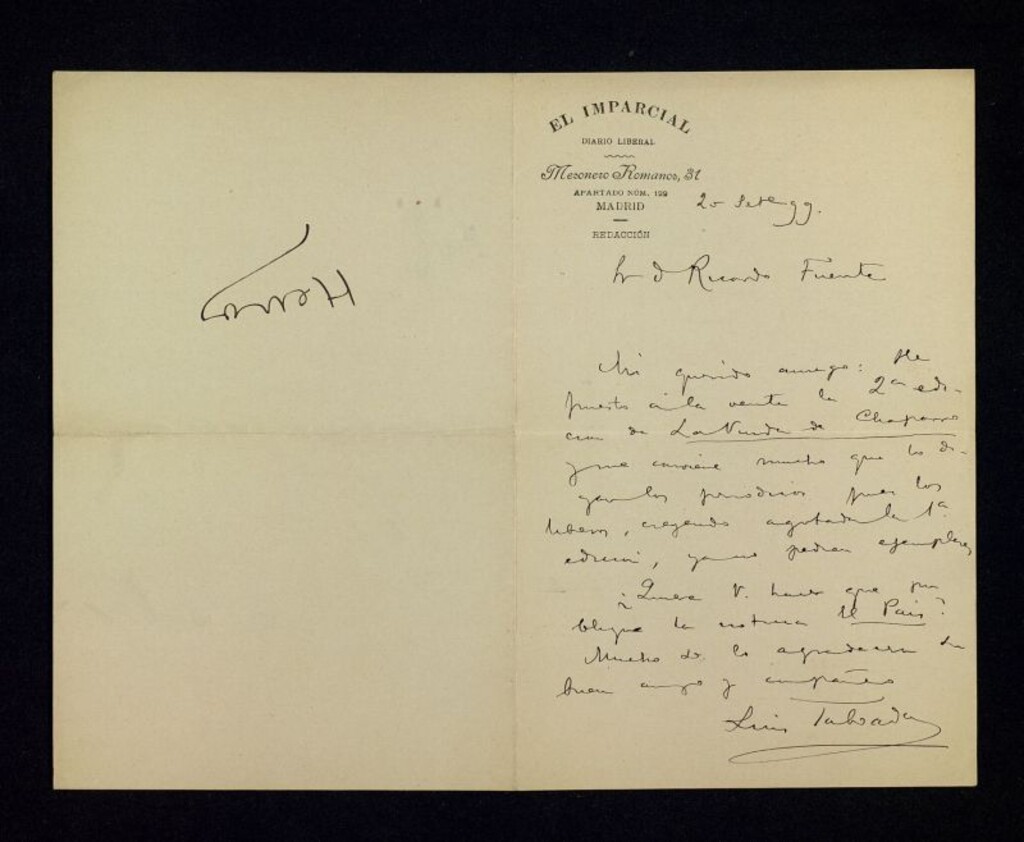 EL IMPARCIAL
DIARIO LIBERAL
Mesonero Romanos, 31
APARTADO NÚM. 199
MADRID
REDACCIÓN
20 Sete 99.
Sr D Ricardo Fuente
Mi querido amigo: He
puesto á la venta la 2ª edi-
cion de La Viuda de Chaparro
y me conviene mucho que lo di-
gan los periódicos pues los
libreros, creyendo agotada la 1ª
edicion, ya no pedian ejemplares
¿Quiere V. hacer que pu
blique la noticia El Pais?
Mucho se lo agradecera su
buen amigo y compañero
Luis Taboada